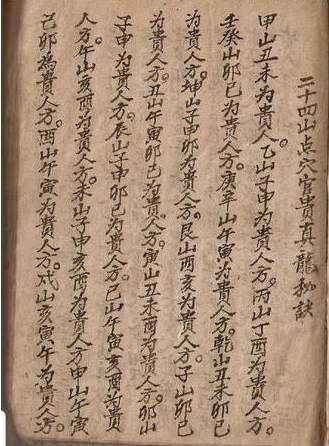 二十四山点穴官貴真龍秘訣
甲山丑未为貴人。乙山子申为貴人方。丙山丁酉为貴人方。
壬癸山卯巳为貴人方。庚辛山午寅为貴人方。乾山丑未卯巳
为貴人方。坤山子申卯为貴人方。艮山酉亥为貴人方。子山卯巳
为貴人方。丑山午寅卯巳为貴人方。寅山丑未酉为貴人方。卯山
子申为貴人方。辰山子申卯巳为貴人方。巳山午寅亥酉为貴
人方。午山亥酉为貴人方。未山子申亥酉为貴人方。申山午寅
己卯為貴人方。酉山午寅為貴人方。戌山亥寅午為貴人方。